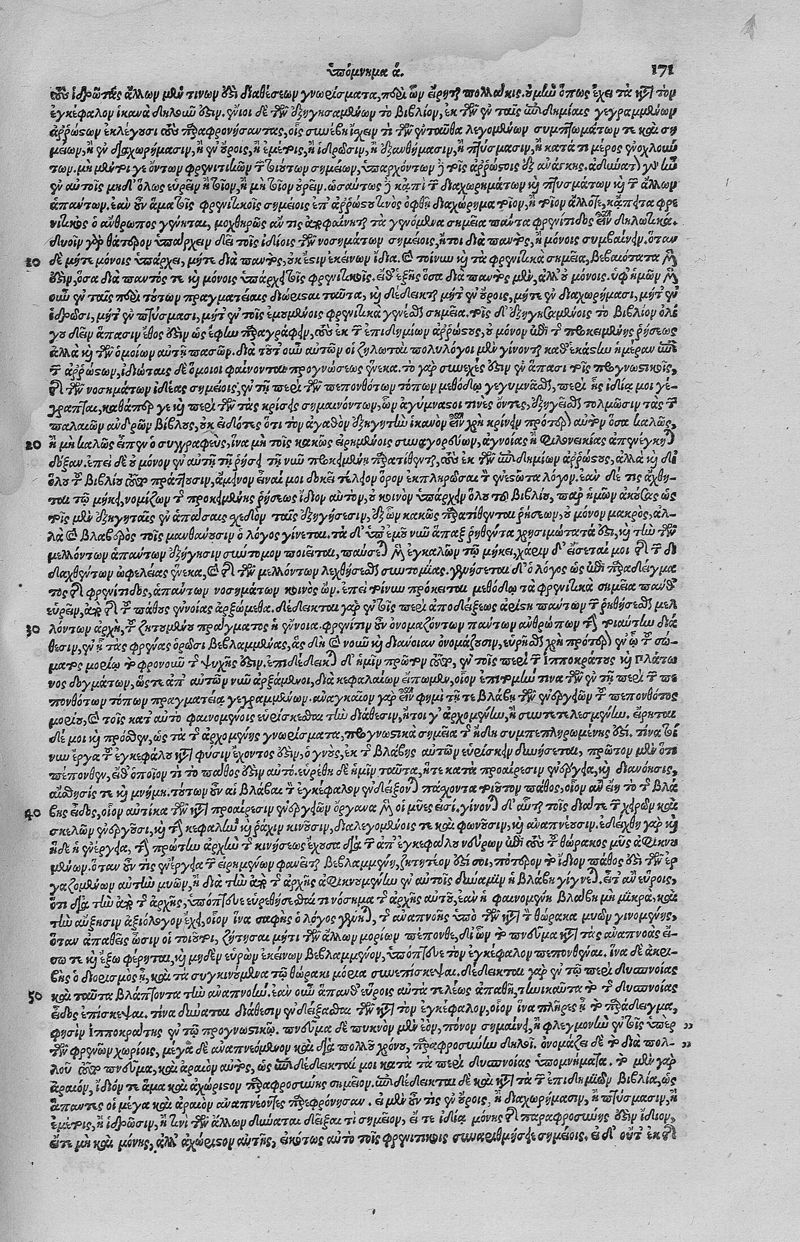 ὑπόμνημα ά. 171
τοὺς ἱδρῶτας ἄλλων μέν τινων ὅτι διαθέσεων γνωρίσματα, περὶ ὧν εἴρηται πολλάκις. οὐ μὴν ὅπως ἔχει τὰ κατὰ τὸν
ἐγκέφαλον ἱκανὰ δηλοῦν ἐστιν. ἔνιοι δὲ τῶν ἐξηγησαμένων τὸ βιβλίον, ἐκ τῶν ἐν ταῖς ἐπιδημίαις γεγραμμένων
ἀῤῥώστων ἐκλέγουσι τοὺς παραφρονήσαντας, οἷς συνέβη ἔχειν τι τῶν ἐνταῦθα λεγομένων συμπτωμάτων τε καὶ ση
μείων, ἢ ἐν διαχωρήμασιν, ἢ ἐν οὔροις, ἢ ἐμέτοις, ἢ ἱδρῶσιν, ἢ ἐξανθήμασιν, ἢ πτύσμασιν, ἢ κατά τι μέρος ἐνοχλουν
των. μὴ μέντοι γε ὄντων φρενιτικῶν τουτέστι τῶν σημείων, ὑπαρχόντων δὲ τοῖς ἀῤῥώστοις ἐξ ἀνάγκης. ἀδύνατον γοῦν
ἐν αὐτοῖς μηδ' ὅλως εὑρεῖν ἢ πτύον, ἢ μὴ πτύον οὖρεῖν. ὡσαύτως δὲ κἀπὶ τῶν διαχωρημάτων καὶ πτυσμάτων καὶ τῶν ἄλλων
ἁπάντων. ἐὰν οὖν ἅμα τοῖς φρενιτικοῖς σημείοις ἐπ' ἀῤῥώστου τινὸς ὀφθῇ διαχώρημα τοῖον, ἢ τοῖον ἄλλο τι, κἄπειτα φρε
νιτικὸς ὁ ἄνθρωπος γένηται, μοχθηρῶς ἄν τις ἀποφαίνηται τὰ γενόμενα σημεῖα πάντα φρενίτιδος εἶναι δηλωτικά.
δυοῖν γὰρ θάτερον ὑπάρχειν δεῖ τοῖς ἰδίοις τῶν νοσημάτων σημείοις, ἤτοι διὰ παντὸς, ἢ μόνοις συμβαίνειν, ὅταν
10 δὲ μήτε μόνοις ὑπάρχει, μήτε διὰ παντὸς, οὐκ ἔστιν ἐκείνων ἴδια. τοίνυν καὶ τὰ φρενιτικὰ σημεῖα, βεβαιότατα μέν
ἐστιν, ὅσα διὰ παντός τε καὶ μόνοις ὑπάρχει τοῖς φρενιτικοῖς. ἐφεξῆς ὅσα διὰ παντὸς μὲν, ἀλλ' οὐ μόνοις. ὑφ' ἡμῶν μὲν
οὖν ἐν ταῖς περὶ τούτων πραγματείαις διώρισται ταῦτα, καὶ δέδεικται μήτ' ἐν οὔροις, μήτε ἐν διαχωρήμασι, μήτ' ἐν
ἱδρῶσι, μήτ' ἐν πτύσμασι, μήτ' ἐν τοῖς ἐμουμένοις φρενιτικὰ γενέσθαι σημεῖα. τοῖς δ' ἐξηγησαμένοις τὸ βιβλίον ὀλί
γου δεῖν ἅπασιν ἔθος ἐστὶν ὡς ἔφην παραγράφειν, τοὺς ἐκ τῶν ἐπιδημιῶν ἀῤῥώστους, οὐ μόνον ἐπὶ τῆς προκειμένης ῥήσεως
ἀλλὰ καὶ τῶν ὁμοίων αὐτῇ πασῶν. διὰ τοῦτ' οὖν αὐτῶν οἱ ζηλωταὶ πολυλόγοι μὲν γίνονται καθ' ἑκάστην ἡμέραν ἐπὶ
τῶν ἀῤῥώστων, ἰδιώταις δὲ ὅμοιοι φαίνονται προγνώσεως ἕνεκα. τὸ γὰρ συνεχές ἐστιν ἐν ἅπασι τοῖς προγνωστικοῖς,
καὶ τῶν νοσημάτων ἰδίοις σημείοις, ἐν τῇ περὶ τῶν πεπονθότων τόπων μεθόδῳ γεγυμνάσθαι, περὶ ἧς ἰδίᾳ μοι γέ-
γραπται, καθάπερ γε καὶ περὶ τῶν τὰς κρίσεις σημαινόντων, ὧν ἀγύμναστοί τινες ὄντες, ἐξηγεῖσθαι τολμῶσιν τὰς τῶν
παλαιῶν ἀνδρῶν βίβλους, οὐκ εἰδότες ὅτι τὸν ἀγαθὸν ἐξηγητὴν ἱκανὸν εἶναι χρὴ κρίνειν πρότερον αὐτὸν ὅσα καλῶς,
20 ἢ μὴ καλῶς εἶπεν ὁ συγγραφεὺς, ἵνα μὴ τοῖς κακῶς εἰρημένοις συναγορεύων, ἀγνοίας ἢ φιλονεικίας ἀπενέγκηται
δόξαν. ἐπεὶ δὲ οὐ μόνον ἐν αὐτῇ τῇ ῥήσει τῇ νῦν προκειμένῃ παρατίθενται, τοὺς ἐκ τῶν ἐπιδημιῶν ἀῤῥώστους, ἀλλὰ καὶ δι'
ὅλου τοῦ βιβλίου τοῦτο πράττουσιν, ἄμεινον εἶναί μοι δοκεῖ τελέως ὅρον ἐκπληρῶσαι τὸν ἐνεστῶτα λόγον. ἐὰν δέ τις ἄχθη-
ται τῷ μήκει, νομίζων τῆς προκειμένης ῥήσεως ἴδιον αὐτὸν, οὐ κοινὸν ὑπάρχειν ὅλου τοῦ βιβλίου, παρ' ἡμῶν ἀκούσας ὡς
τοῖς μὲν ἐξηγηταῖς ἐν ἁπάσαις σχεδὸν ταῖς ἐξηγήσεσιν, ἐξ ὧν κακῶς παρατίθενται ῥήσεων, οὐ μόνον μακρὸς, ἀλ-
λὰ καὶ βλαβερὸς τοῖς μανθάνουσιν ὁ λόγος γίνεται. τὰ δ' ὑπ' ἐμοῦ νῦν ἅπαξ ῥηθέντα χρησιμώτατά ἐστι, καὶ τὴν τῶν
μελλόντων ἁπάντων ἐξήγησιν σύντομον ποιεῖται, παύσεται μὲν ἐγκαλῶν τῷ μήκει, χάριν δ' εἴσεταί μοι καὶ τῆς δι-
δαχθέντων ὠφελείας ἕνεκα, καὶ τῆς τῶν μελλόντων λεχθήσεσθαι συντομίας. γενήσεται δ' ὁ λόγος ὡς ἐπὶ παραδείγμα
τος τῆς φρενίτιδος, ἁπάντων νοσημάτων κοινὸς ὤν. ἐπεὶ τοίνυν πρόκειται μεθόδῳ τὰ φρενιτικὰ σημεῖα πάνθ'
εὑρεῖν, ἀπὸ τῆς τοῦ πάθους ἐννοίας ἀρξώμεθα. δέδεικται γὰρ ἐν τοῖς περὶ ἀποδείξεως ἀρίστη πάντων τῶν ῥηθήσεσθαι μελ
30 λόντων ἀρχὴ, τοῦ ζητουμένου πράγματος ἡ ἔννοια. φρενῖτιν οὖν ὀνομαζόντων πάντων ἀνθρώπων τὴν τοιαύτην διά
θεσιν, ἐν ᾗ τὰς φρένας ὁρῶσι βεβλαμμένας, ἃς δὴ καὶ νοῦν καὶ διάνοιαν ὀνομάζουσιν, εὑρῆσθαι χρὴ πρότερον ἐν ᾧ τοῦ σώ-
ματος μορίῳ τὸ φρονοῦν τῆς ψυχῆς ἐστιν. ἐπιδέδεικται δ' ἡμῖν πρῶτον τοῦτο, ἐν τοῖς περὶ τῶν Ἱπποκράτους καὶ Πλάτω
νος δογμάτων, ὥστε ἀπ' αὐτῶν νῦν ἀρξάμενοι, διὰ κεφαλαίων εἴπωμεν, οἷον ἐπιτομήν τινα τῶν ἐν τῇ περὶ τῶν πε
πονθότων τόπων πραγματείᾳ γεγραμμένων. ἀναγκαῖον γὰρ εἶναι φημὶ τῇ τε βλάβῃ τῶν ἐνεργειῶν τοῦ πεπονθότος
μορίου, καὶ τοῖς κατ' αὐτὸ φαινομένοις εὑρίσκεσθαι τὴν διάθεσιν, ἤτοι γ' ἀρχομένην, ἢ συντετελεσμένην. εἴρηται
δέ μοι καὶ πρόσθεν, ὡς τὰ τῆς ἀρχομένης γνωρίσματα, προγνωστικὰ σημεῖα τῆς ἤδη συμπεπληρωμένης ἐστί. τίνα τοί
νυν ἔργα τοῦ ἐγκεφάλου κατὰ φύσιν ἔχοντος ἐστὶν, ὁ γνοὺς, ἐκ τῆς βλάβης αὐτῶν εὑρίσκειν δυνήσεται, πρῶτον μὲν ὅτι
πέπονθεν, εἶθ' ὁποῖόν τι τὸ πάθος ἐστὶν αὐτό. εὑρέθη δὲ ἡμῖν ταῦτα, ἥτε κατὰ προαίρεσιν ἐνέργεια, καὶ διανόησις,
αἴσθησίς τε καὶ μνήμη. τούτων οὖν αἱ βλάβαι τὸν ἐγκέφαλον ἐνδείξονται πάσχοντα τοιοῦτον πάθος, οἷον ἂν εἴη τὸ τῆς βλά
40 βης εἶδος, οἷον αὐτίκα τῶν κατὰ προαίρεσιν ἐνεργειῶν ὄργανα μὲν οἱ μύες εἰσί, γίνονται δ' αὗται τοῖς διά τε τῶν χειρῶν καὶ
σκελῶν ἐνεργοῦσι, καὶ τὴν κεφαλὴν καὶ ῥάχιν κινοῦσιν, διαλεγομένοις τε καὶ φωνοῦσιν, καὶ ἀναπνέουσιν. ἐδείχθη γὰρ καὶ
ἥδε ἡ ἐνέργεια, τὴν πρώτην ἀρχὴν τῆς κινήσεως ἔχουσα διὰ τῶν ἀπ' ἐγκεφάλου νεύρων ἐπὶ τοὺς τοῦ θώρακος μῦς ἀφικνου
μένων. ὅταν οὖν τις ἐνέργεια τῶν εἰρημένων φανεῖται βεβλαμμένη, ζητητέον ἐστί σοι, πότερον τὸ ἴδιον πάθος ἐστὶ τῶν ἐρ
γαζομένων αὐτὴν μυῶν, ἢ διὰ τὴν ἀπὸ τῆς ἀρχῆς ἀφικνουμένην ἐν αὐτοῖς δύναμιν ἡ βλάβη γίγνεται. εἶτ' ἂν εὕροις,
ὅτι διὰ τὴν ἀπὸ τῆς ἀρχῆς, ὑπόπτευε εὑρεθήσεσθαί τι νόσημα τῆς ἀρχῆς αὐτὸ, ἐὰν ἡ φαινομένη βλάβη μὴ μικρὰ, καὶ
τὴν αὔξησιν ἀξιόλογον ἔχῃ, οἷον ἵνα σαφὴς ὁ λόγος γένηται, τῆς ἀναπνοῆς ὑπὸ τῶν κατὰ τὸν θώρακα μυῶν γινομένης,
ὅταν ἀπαθεῖς ὦσιν οἱ τοιοῦτοι, ζήτησαι μήτι τῶν ἄλλων μορίων πέπονθε, δι' ὧν τὸ πνεῦμα κατὰ τὰς ἀναπνοὰς εἴ-
σω τε καὶ ἔξω φέρηται, καὶ μηδὲν εὑρὼν ἐκείνων βεβλαμμένον, ὑπόπτευε τὸν ἐγκέφαλον πεπονθέναι. ἵνα δὲ ἀκρι-
βὴς ὁ διορισμὸς ᾖ, καὶ τὰ συγκινούμενα τῷ θώρακι μόρια συνεπίσκεψαι. δέδεικται γὰρ ἐν τῷ περὶ δυσπνοίας
50 καὶ ταῦτα βλάπτοντα τὴν ἀναπνοήν. ἐὰν οὖν ἅπανθ' εὕροις αὐτὰ τελέως ἀπαθῆ, τηνικαῦτα τὸ τῆς δυσπνοίας
εἶδος ἐπίσκεψαι. τίνα δύναται διάθεσιν ἐνδείξασθαι τῶν κατὰ τὸν ἐγκέφαλον, οἷον ἵνα πλήρες ᾖ τὸ παράδειγμα,
φησὶν Ἱπποκράτης ἐν τῷ προγνωστικῷ. πνεῦμα δὲ πυκνὸν μὲν ἐὸν, πόνον σημαίνει, ἢ φλεγμονὴν ἐν τοῖς ὑπὲρ „
τῶν φρενῶν χωρίοις, μέγα δὲ ἀναπνεόμενον καὶ διὰ πολλοῦ χρόνου, παραφροσύνην δηλοῖ. ὀνομάζει δὲ τὸ διὰ πολ- „
λοῦ τοῦτο πνεῦμα, καὶ ἀραιὸν αὐτὸς, ὡς ἐπιδέδεικταί μοι κατὰ τὰ περὶ δυσπνοίας ὑπομνήματα. τὸ μὲν γὰρ
ἀραιὸν, ἴδιόν τε ἅμα καὶ ἀχώριστον παραφροσύνης σημεῖον. ἐπιδέδεικται δὲ καὶ κατὰ τὰ τῶν ἐπιδημιῶν βιβλία, ὡς
ἅπαντες οἱ μέγα καὶ ἀραιὸν ἀναπνέοντες παρεφρόνησαν. εἰ μὲν οὖν τις ἐν οὔροις, ἢ διαχωρήμασιν, ἢ πτύσμασιν, ἢ
ἐμέτοις, ἢ ἱδρῶσιν, ἤ τινι τῶν ἄλλων δύναται δεῖξαί τι σημεῖον, εἴ τε ἰδίᾳ μόνης τῆς παραφροσύνης ἐστὶν ἴδιον,
εἴτε μὴ καὶ μόνης, ἀλλ' ἀχώριστον αὐτῆς, εἰκότως αὐτὸ τοῖς φρενιτικοῖς συναριθμήσει σημείοις. εἰ δ' οὔτ' ἐκ τῆς